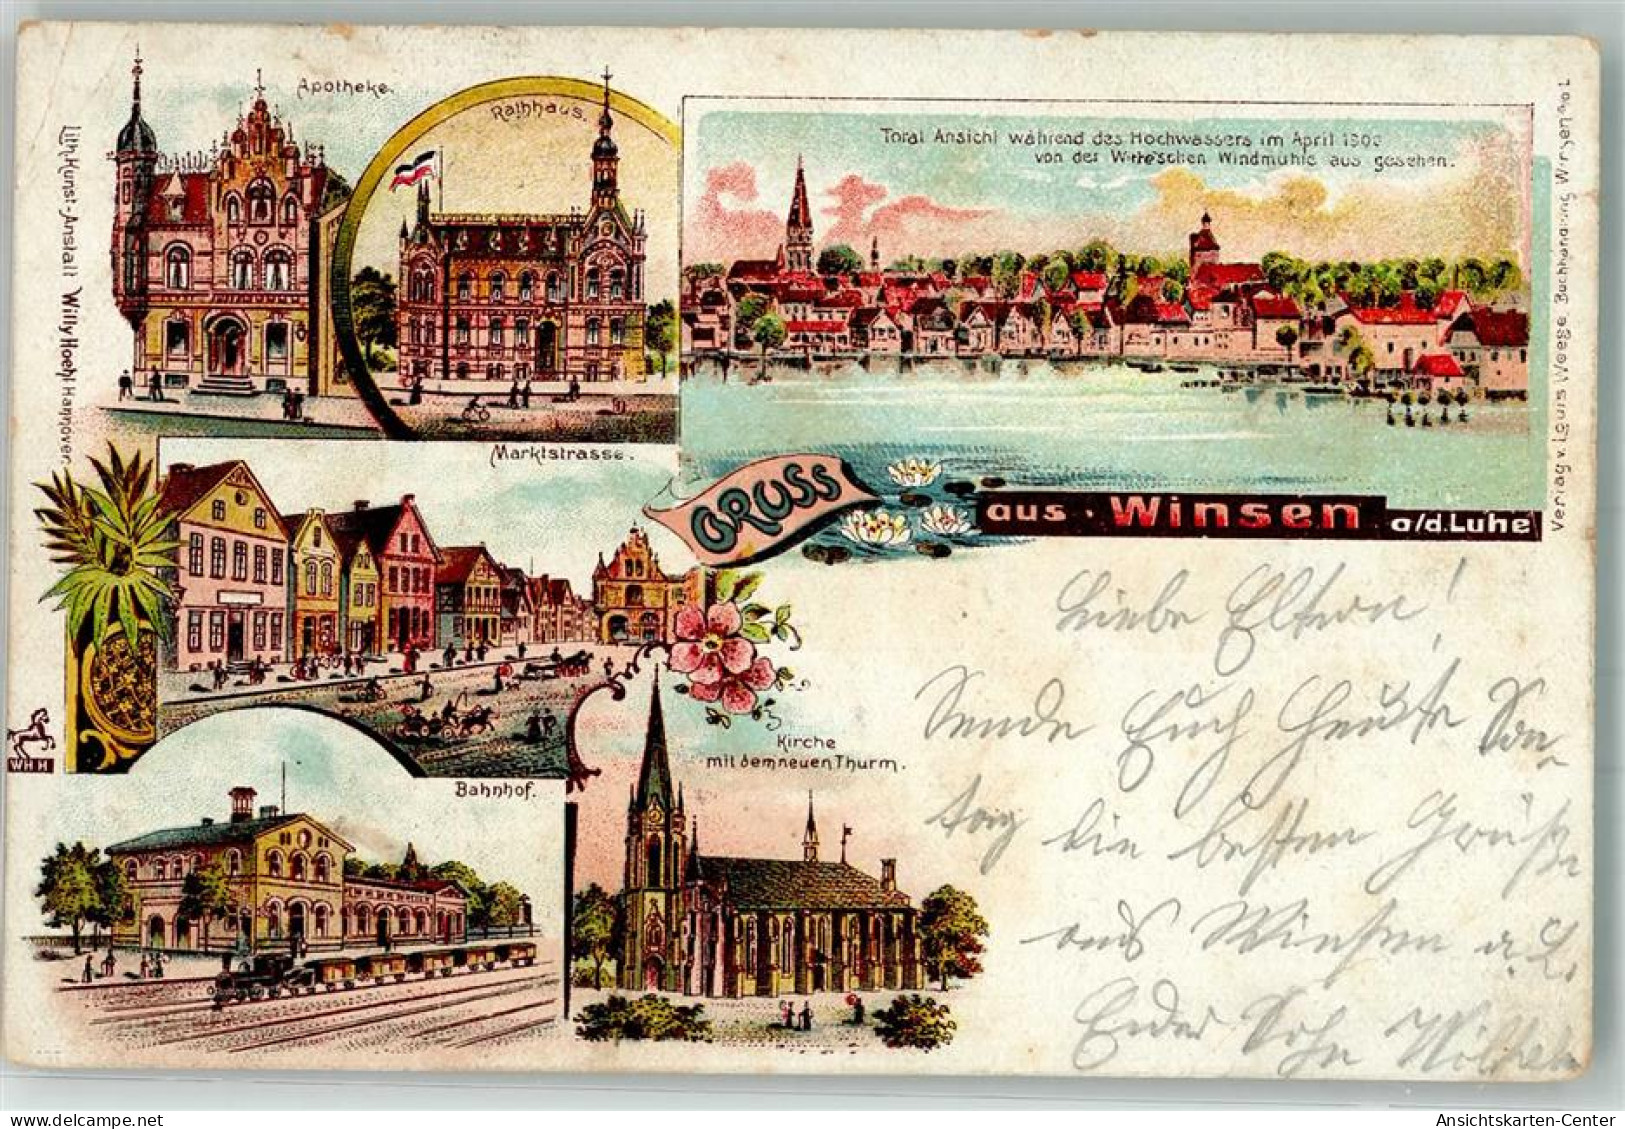 Apotheke.
Rathhaus.
Total Ansicht während des Hochwassers im April 1900
von der Witte'schen Windmühle aus gesehen.
Lith. Kunst-Anstalt Willy Hoehl Hannover.
Verlag v. Louis Woege Buchhandlung Winsen a.d. L.
Marktstrasse.
GRUSS
aus • Winsen a/d. Luhe
Kirche
mit dem neuen Thurm.
WHH
Bahnhof.
Liebe Eltern!
Sende Euch heute Son-
tag die besten Grüße
aus Winsen a. L.
Sohn Wilhelm
Ansichtskarten-Center